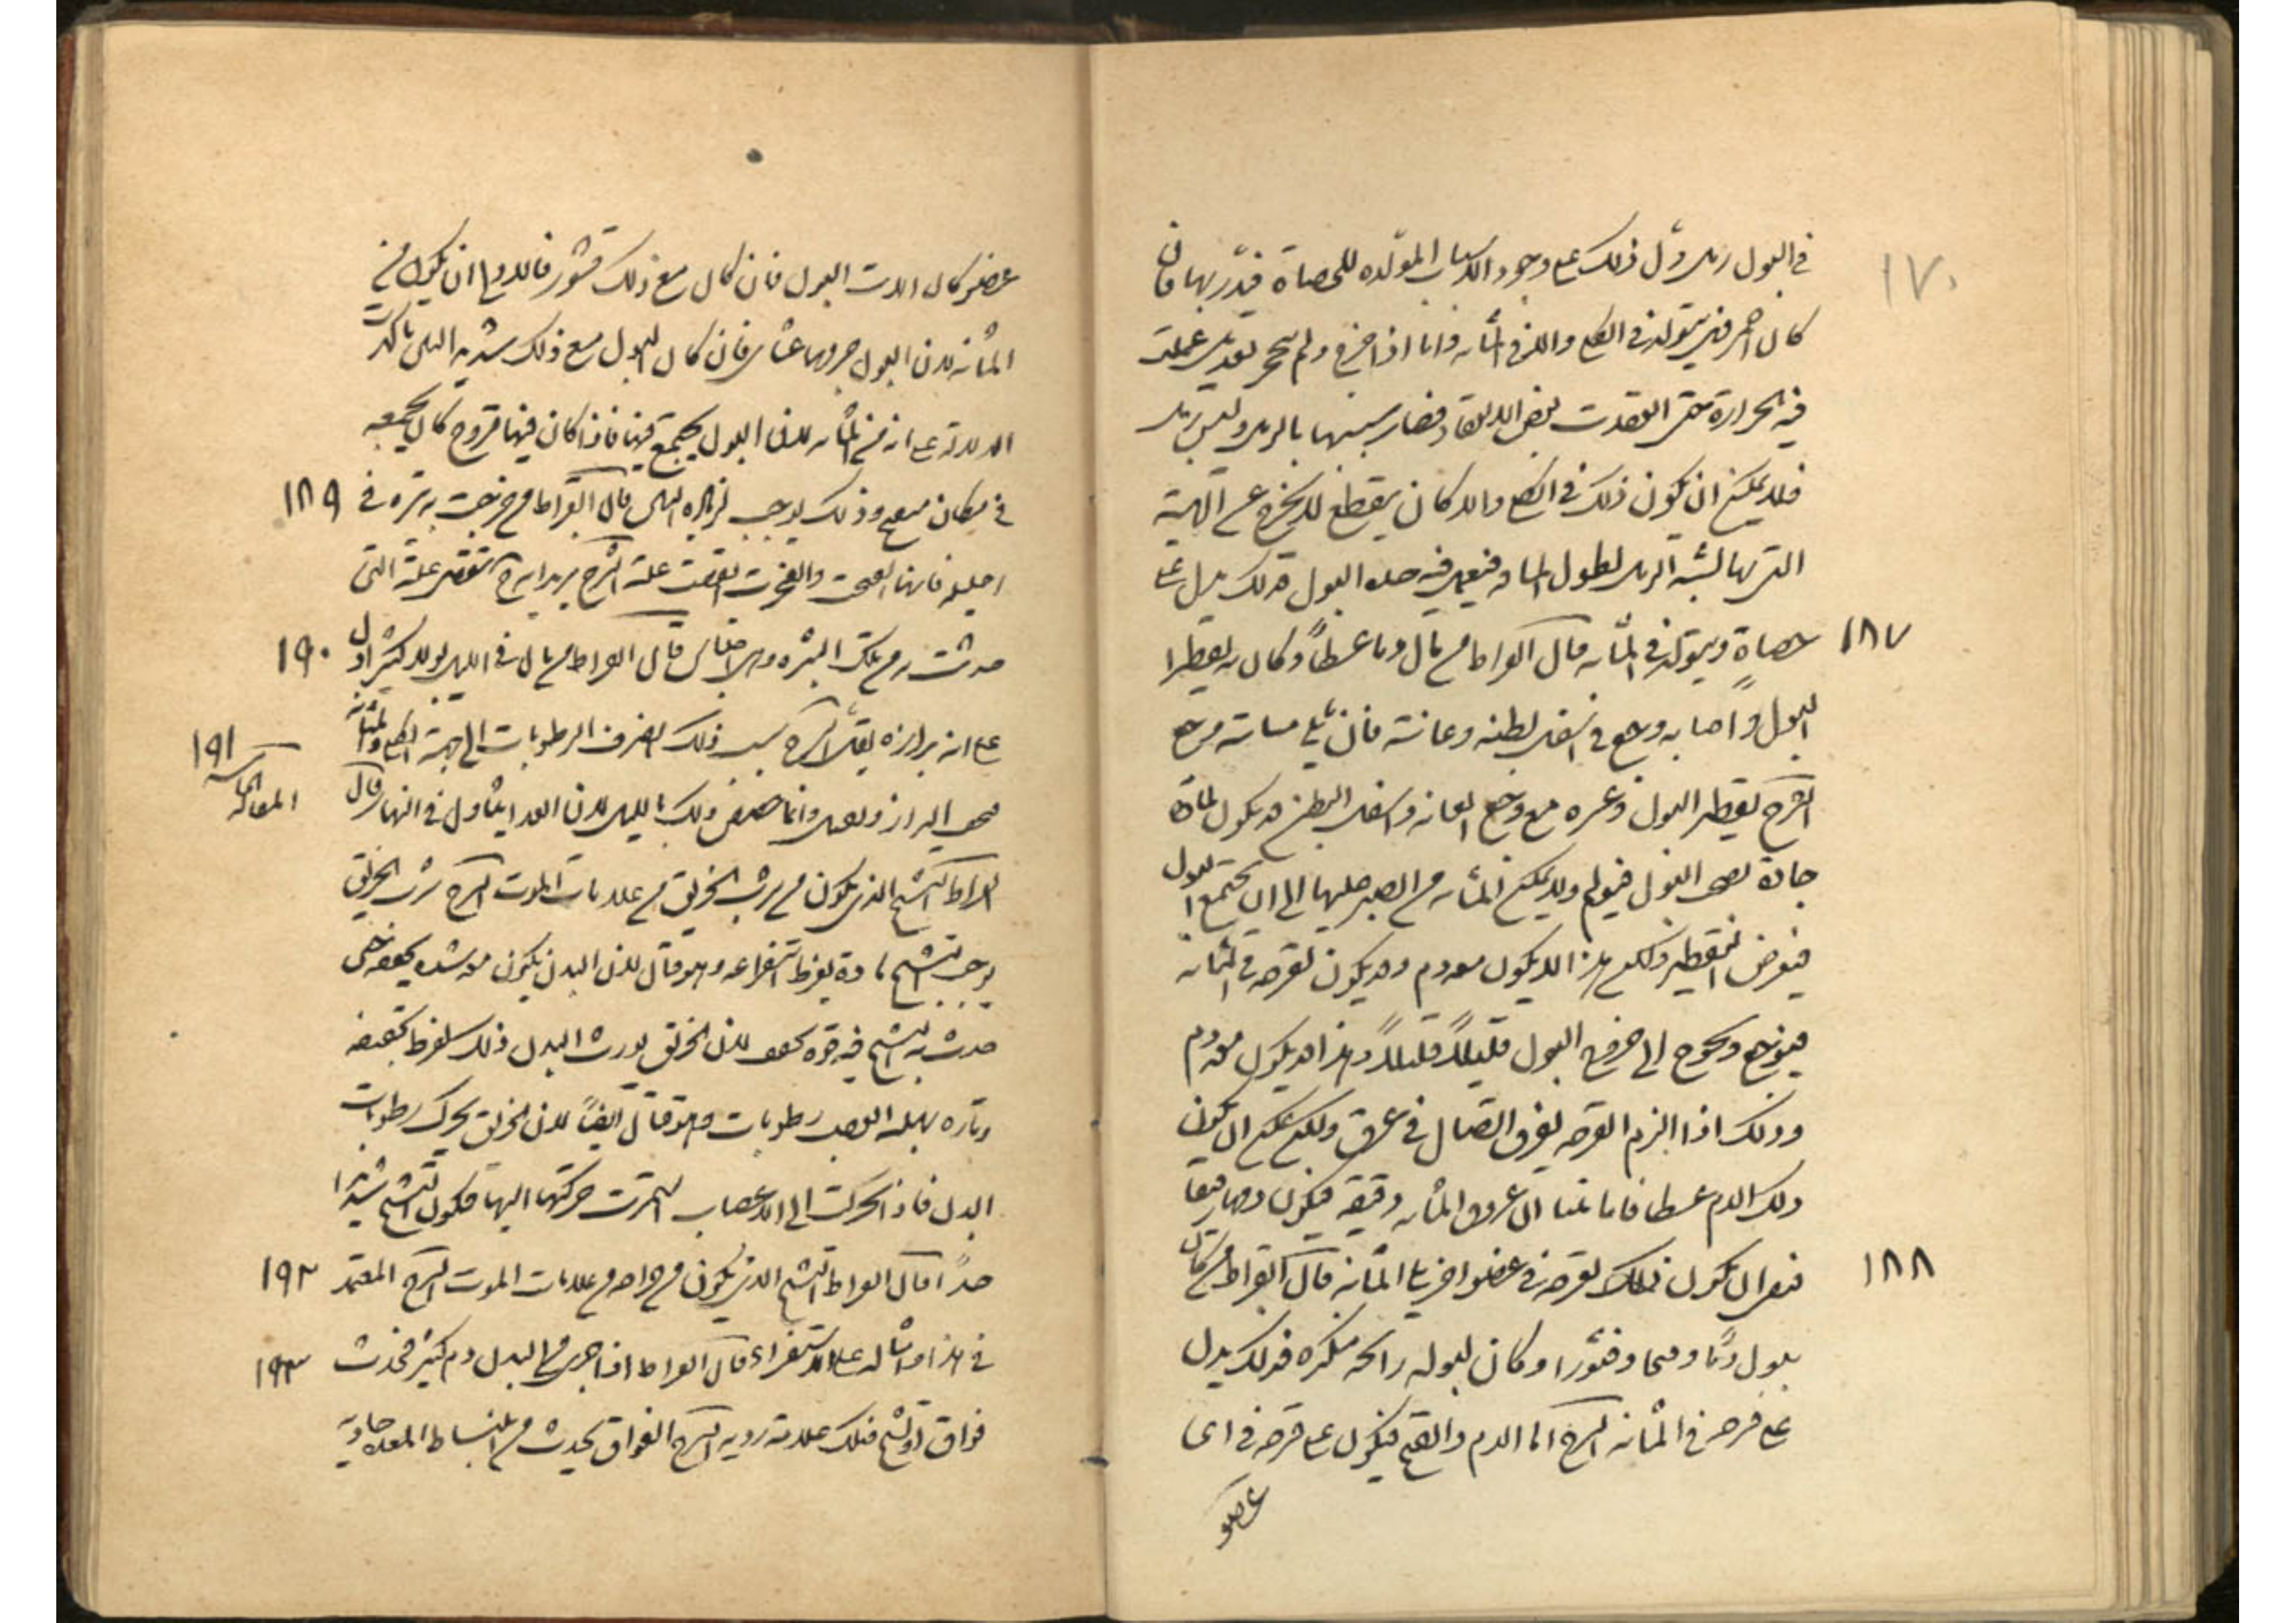 ١٧٠
في البول رمل دل ذلك على وجود الاسباب المولده للحصاة فيدبر بها فان
كان احمر فهى تتولد فى الكلى والا فى المثانه وانما اذا خرج ولم
فيه الحرارة حتى انعقدت بعض الانعقاد فصار شبيها بالرمل وليس برمل
فلا يمكن ان يكون ذلك فى الكلى والا كان يقطع لا يخرج على الهيئة
التى بها يشبه الرمل لطول المسافه فيه البول فذلك يدل على
١٨٧ حصاة ويتولد فى المثانه قال ابقراط من بال دما عبيطاً وكان به تقطير
البول واصابه وجع فى اسفل بطنه وعانته فان ما يلى مثانته وجع
الشرح تقطير البول وعسره مع وجع العانه واسفل البطن قد يكون لمادة
حادة البول فيؤلم ولا يمكن المثانه من الصبر عليها الى ان يجتمع البول
فيعرض التقطير ولكن هذا لا يكون معه دم وقد يكون لقرحه فى المثانه
فيوجع ويحوج الى خروج البول قليلاً قليلاً وهذا قد يكون معه دم
وذلك اذا الزم القرحه تفرق اتصال فى عرق ولكن يمكن ان يكون
ذلك الدم عبيطا فاما بينا ان عروق المثانه دقيقه فيكون دمها رقيقا
١٨٨ فبقى ان يكون تلك القرحه فى عضو اخر يلى المثانه قال ابقراط من كان
يبول دما وقيحا وقشورا وكان لبوله رائحه منكره فذلك يدل
على قرحه فى المثانه الشرح اما الدم والقيح فيكون على قرحه فى اى
عضو
عضو كان الات البول فان كان مع ذلك قشور فالاولى ان يكون فى
المثانه لان البول فان كان البول مع ذلك شديد النتن تاكدت
الدلالة على انه فى المثانه لان البول يجتمع فيها فاذا كان فيها قروح كان يجتمعه
١٨٩ فى مكان وذلك يوجب زياده النتن قال ابقراط من خرجت به بثره فى
احليله فانها اذا انفتحت وانفجرت انقضت علته الشرح يريد انه تنقضى علته التى
١٩٠ حدثت به من تلك البثره قال ابقراط من بال فى الليل بولا كثيرا دل
على ان برازه يقل الشرح سبب ذلك انصراف الرطوبات الى جهة الكلى والمثانه
١٩١ البراز ويقل وانما خصص ذلك بالليل لان الغذا يتناول فى النهار قال
المقاله
ابقراط التشنج الذى يكون من شرب الخربق من علامات الموت الشرح شرب الخربق
يوجب التشنج تاره بفرط استفراغه وهو قتال لان البدن يكون معه شديد حتى
حدث به التشنج فيه قوه لان الخربق يورث البدن ذلك بفرط تجفيفه
وتاره العصب رطوبات وهو قتال ايضاً لان الخربق يحرك رطوبات
البدن فاذا تحركت الى الاعصاب استمرت حركتها اليها فيكون التشنج شديدا
١٩٢ جداً قال ابقراط التشنج الذى يكون من جراحه من علامات الموت الشرح المعتمد
١٩٣ فى هذا وامثاله على الاستقراء قال ابقراط اذا جرى من البدن دم كثير فحدث
فواق او تشنج فتلك علامة رديه الشرح الفواق يحدث من انبساط المعده